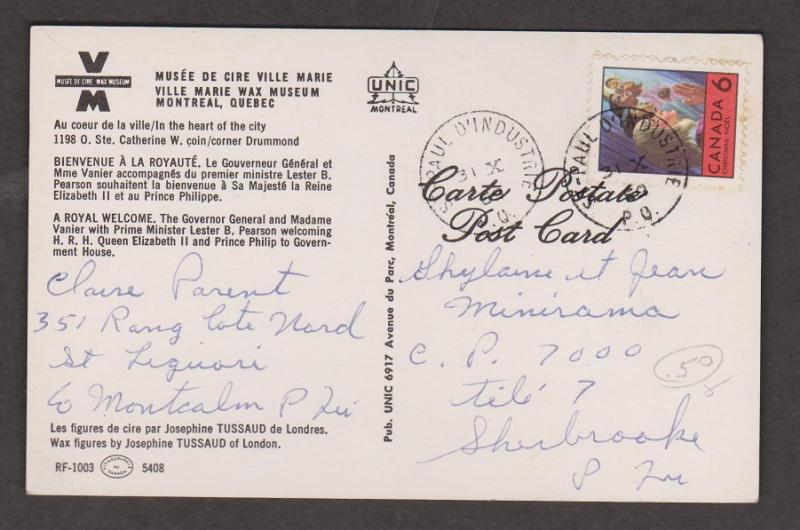 V
MUSÉE DE CIRE WAX MUSEUM
M
MUSÉE DE CIRE VILLE MARIE
VILLE MARIE WAX MUSEUM
MONTREAL, QUEBEC
Au coeur de la ville/In the heart of the city
1198 O. Ste. Catherine W. coin/corner Drummond
BIENVENUE À LA ROYAUTÉ. Le Gouverneur Général et
Mme Vanier accompagnés du premier ministre Lester B.
Pearson souhaitent la bienvenue à Sa Majesté la Reine
Elizabeth II et au Prince Philippe.
A ROYAL WELCOME. The Governor General and Madame
Vanier with Prime Minister Lester B. Pearson welcoming
H. R. H. Queen Elizabeth II and Prince Philip to Govern-
ment House.
Claire Parent
351 Rang Côte Nord
St Liguori
Co Montcalm P Qu
Les figures de cire par Josephine TUSSAUD de Londres.
Wax figures by Josephine TUSSAUD of London.
RF-1003
LITHOGRAPHIÉ AU CANADA
5408
Pub. UNIC 6917 Avenue du Parc, Montréal, Canada
UNIC
MONTREAL
ST-PAUL D'INDUSTRIE
31 X
P.Q.
ST-PAUL D'INDUSTRIE
31 X
P.Q.
CANADA 6
CHRISTMAS·NOËL
Carte Postale
Post Card
Ghylaine et Jean
Minirama
C. P. 7000
télé 7
Sherbrooke
P Qu
.50